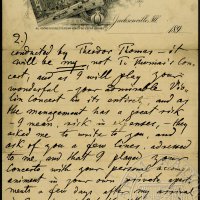 Jacksonville, Ill.
189
2.)
conducted by Theodor Thomas – it
will be my, not T. Thomas's Con-
cert, and as I will play your
wonderful – your Vio-
lin Concert in its entirety, and as
the management has a great risk
I mean, risk in expenses, they
asked me to write to you, and
ask of you a few lines, adressed
to me, and that I played your
Concerto with your personal accom-
paniment in your own private apart-
ments a few days after my arrival